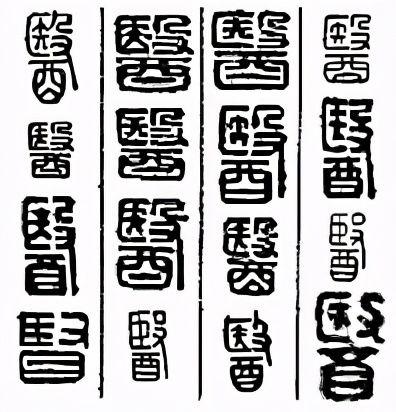 醫醫醫醫
醫醫醫醫
醫醫醫醫
醫醫醫